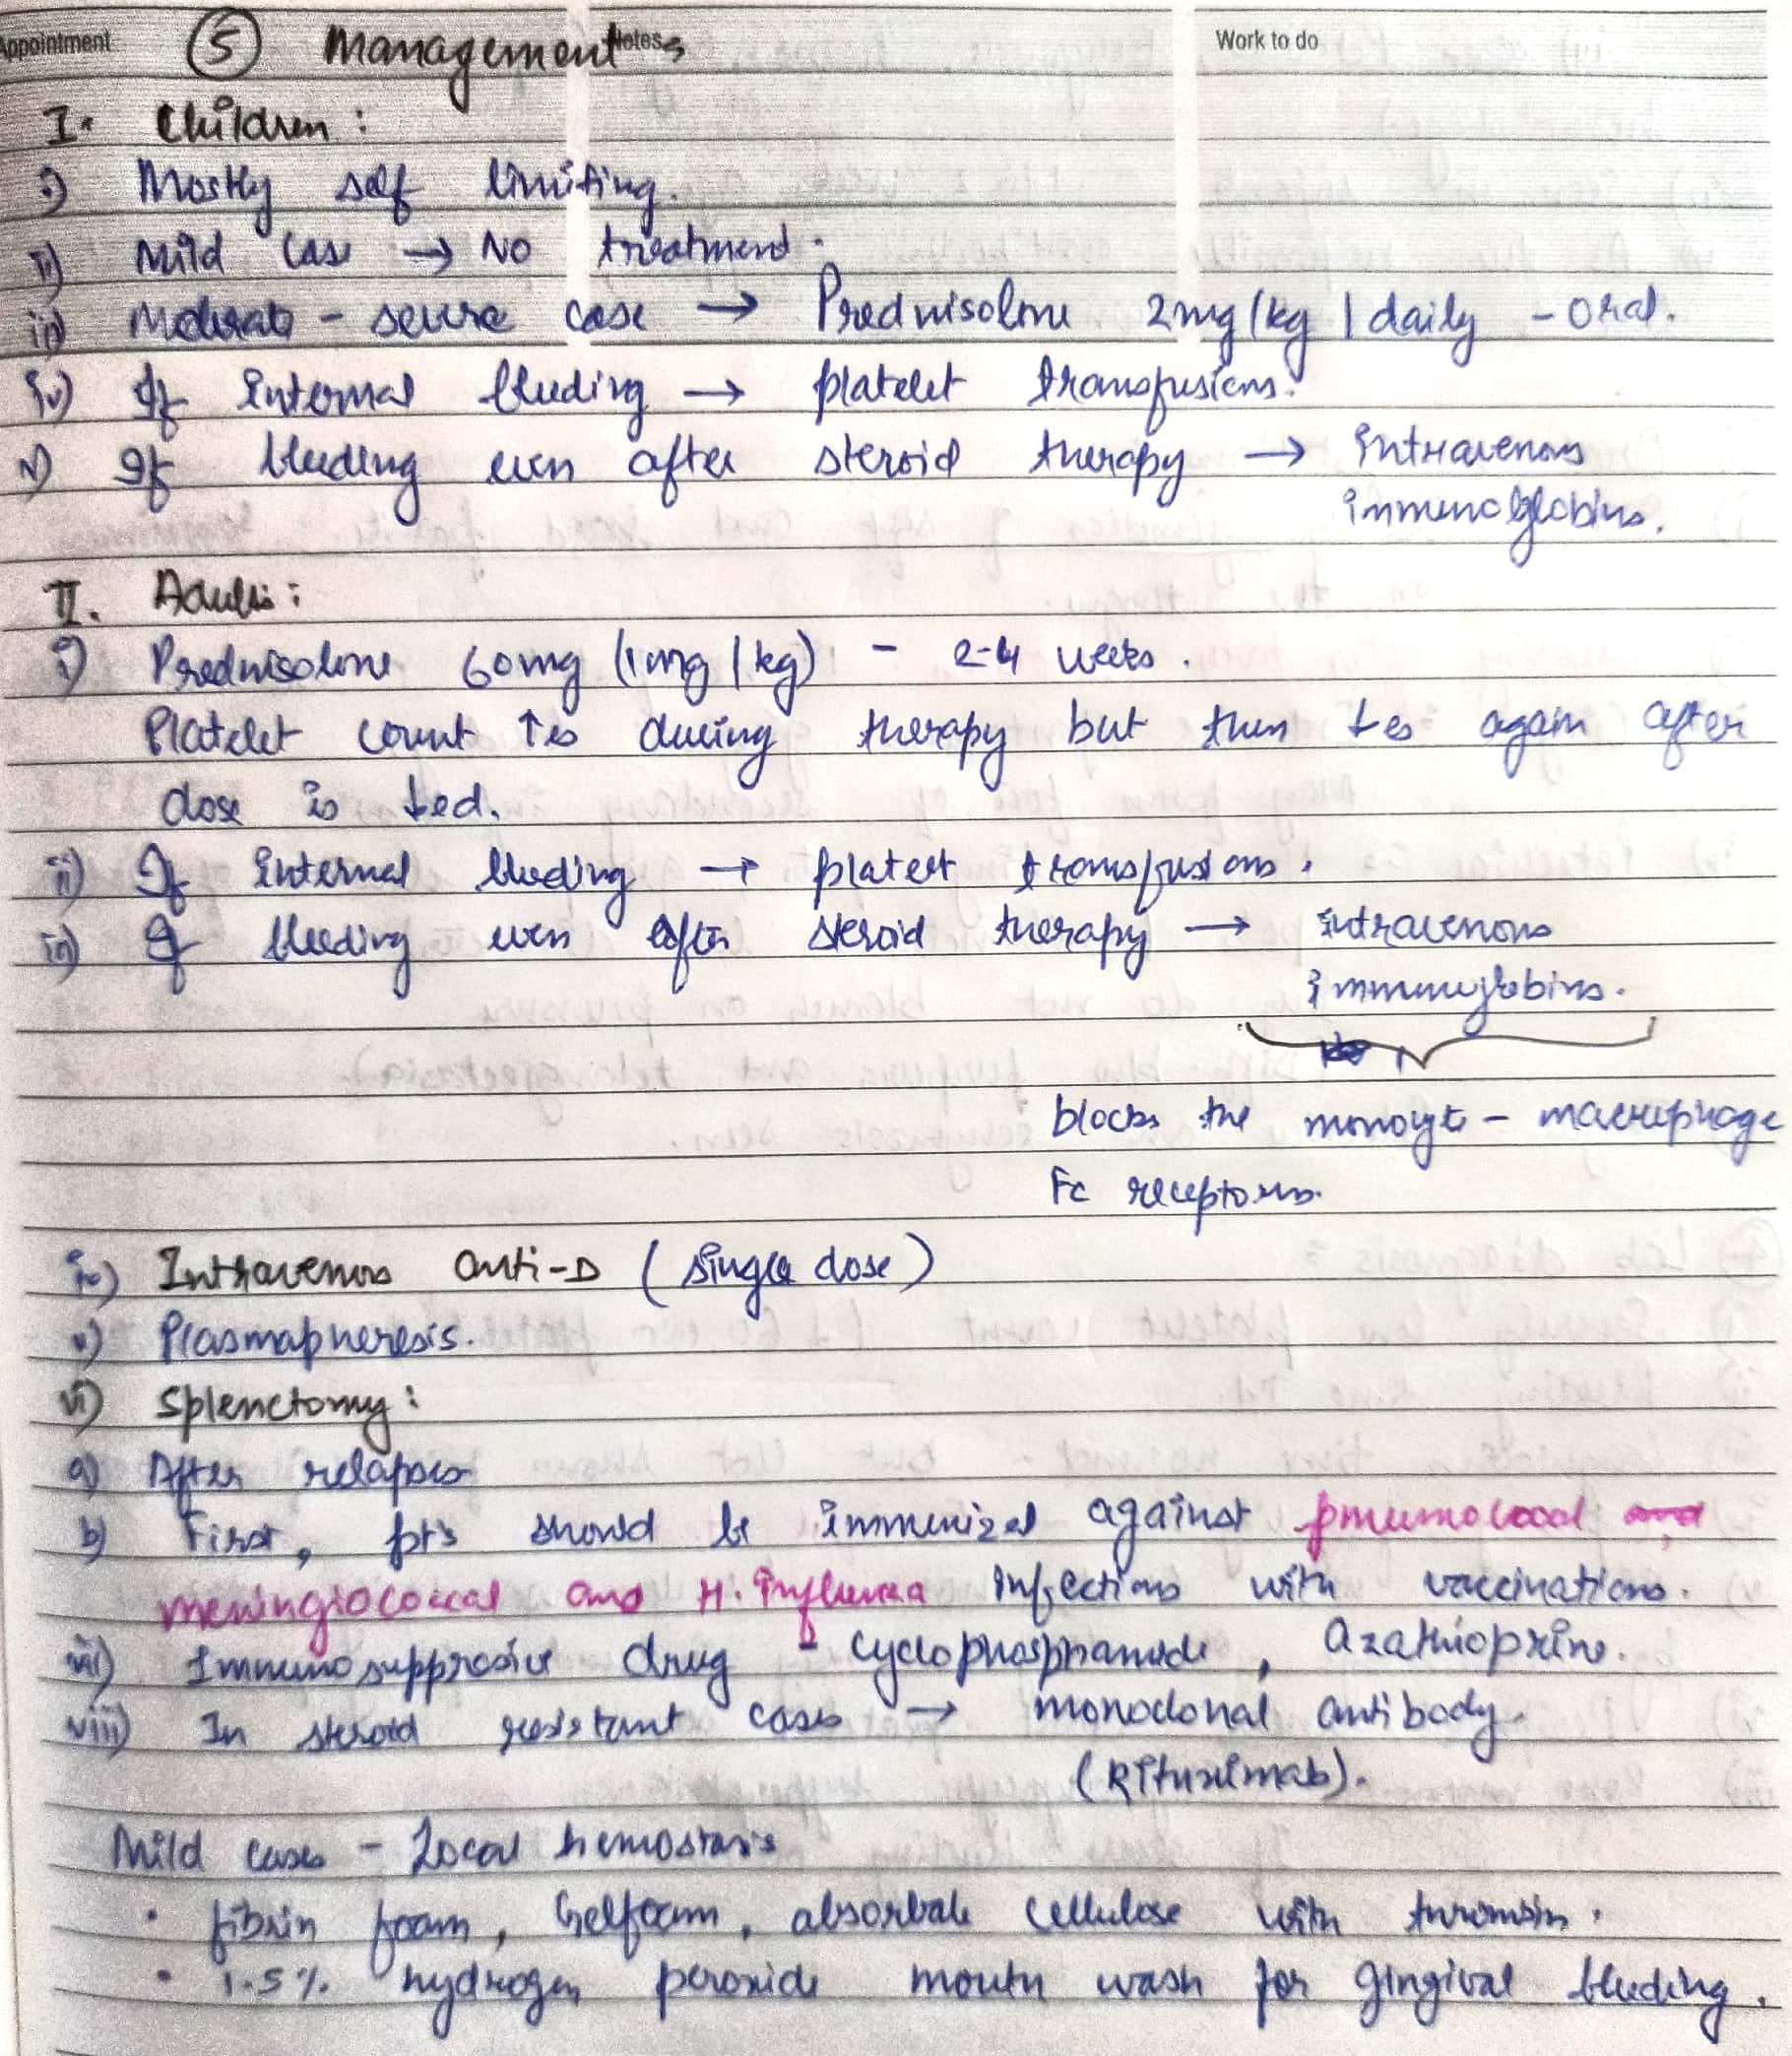 Appointment
Notes
Work to do
5 Management
I. Children :
i) Mostly self limiting.
ii) Mild case → No treatment.
iii) Moderate - severe case → Prednisolone 2mg/kg/daily - Oral.
iv) If Internal bleeding → platelet transfusions.
v) If bleeding even after steroid therapy → intravenous
immunoglobins.
II. Adults :
i) Prednisolone 60mg (1mg/kg) - 2-4 weeks.
Platelet count ↑es during therapy but then ↓es again after
dose is ↓ed.
ii) If internal bleeding → platelet transfusions.
iii) If bleeding even after steroid therapy → intravenous
immunoglobins.
blocks the monocyte - macrophage
Fc receptors.
iv) Intravenous anti-D (single dose)
v) Plasmapheresis.
vi) Splenectomy :
a) After relapses
b) First, pt's should be immunized against pneumococcal
meningiococcal and H. influenza infections with vaccinations.
vii) Immunosuppressive drug - cyclophosphamide, Azathioprine.
viii) In steroid resistant cases → monoclonal antibody.
(Rituximab).
Mild cases - Local hemostasis
• fibrin foam, Gelfoam, absorbable cellulose with thrombin.
• 1.5% hydrogen peroxide mouth wash for gingival bleeding.